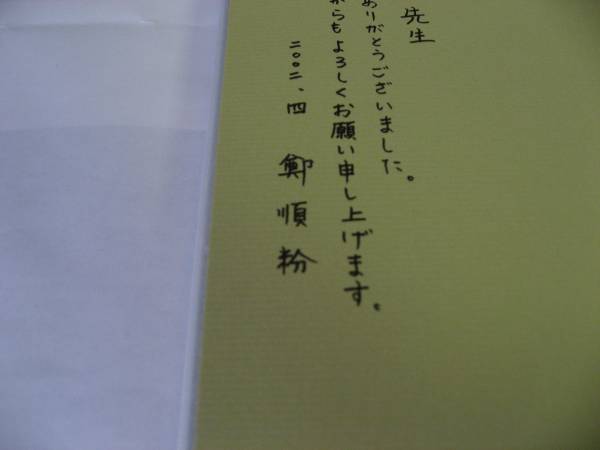 先生
ありがとうございました。
からもよろしくお願い申し上げます。
二〇〇二、四 鄭順粉